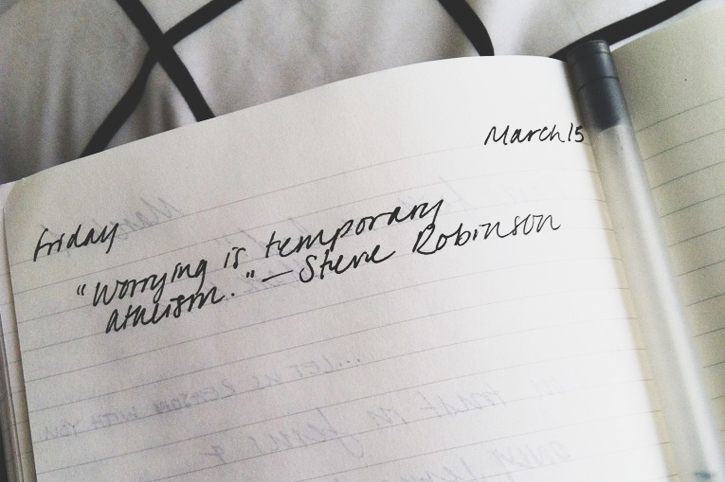 March 15
Friday
"Worrying is temporary
atheism." — Steve Robinson